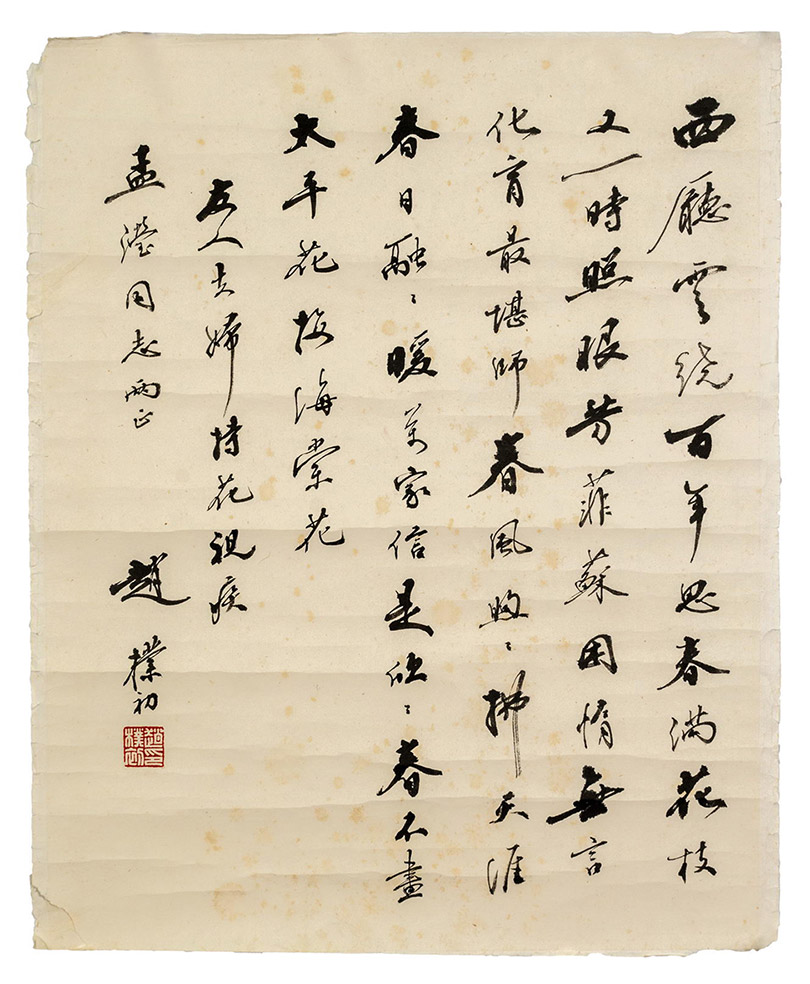 西廳雲繞百年思春滿花枝
又一時照眼芳菲蘇困惰無言
化育最堪師春風煦〻拂天涯
春日融〻暖萬家信是欣〻春不盡
太平花接海棠花
友人夫婦持花視疾
孟瀅同志兩正
趙樸初